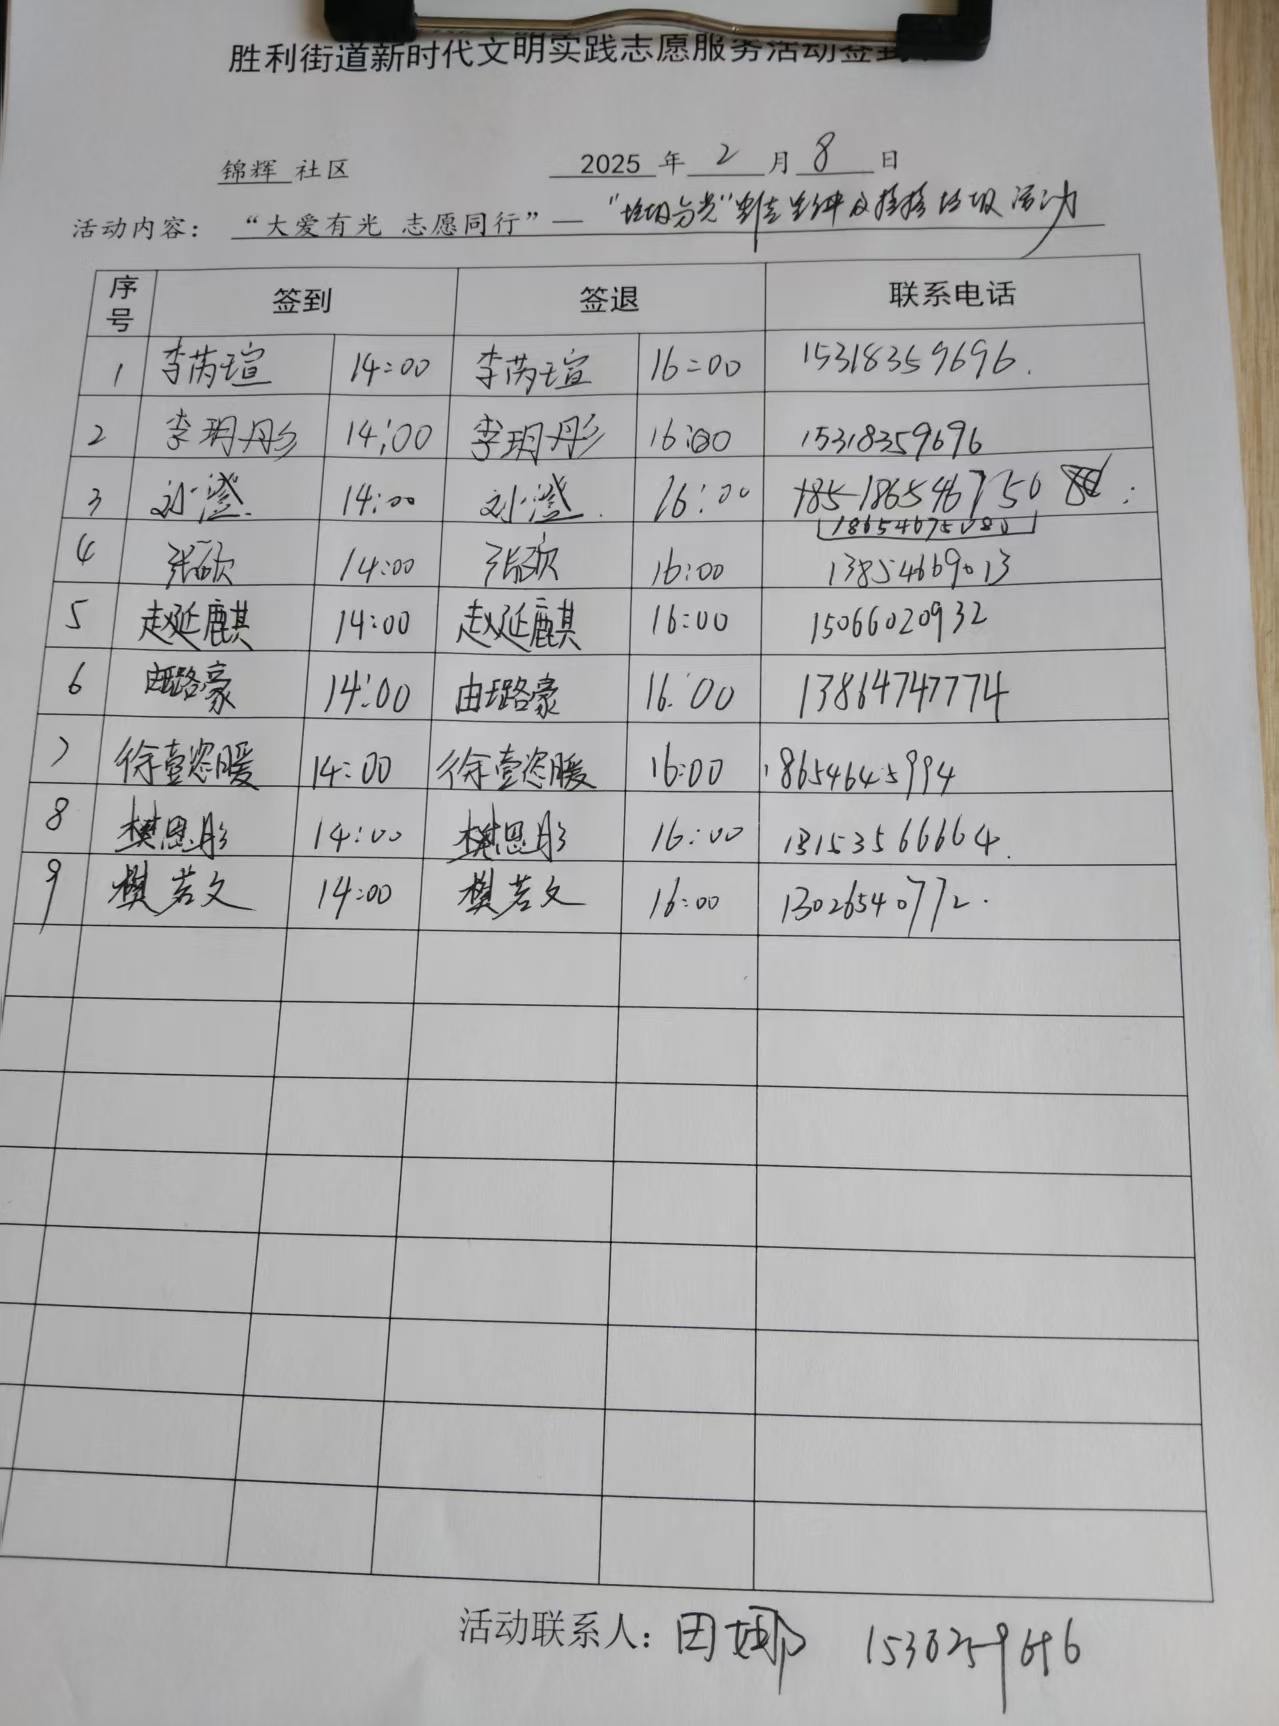 胜利街道新时代文明实践志愿服务活动签到
锦辉 社区 2025 年 2 月 8 日
活动内容： “大爱有光 志愿同行”— 垃圾 活动
序号 签到 签退 联系电话
1 李芮瑄 14:00 李芮瑄 16:00 15318359696.
2 李玥彤 14:00 李玥彤 16:00 15318359696
3 刘滢 14:00 刘滢 16:00
18654675080
4 张砚 14:00 张砚 16:00 13854669013
5 赵延麒 14:00 赵延麒 16:00 15066020932
6 由璐豪 14:00 由璐豪 16:00 13864747774
7 徐壹恣暖 14:00 徐壹恣暖 16:00 18654645994
8 樊恩彤 14:00 樊恩彤 16:00 13153566664.
9 樊若文 14:00 樊若文 16:00 13026540772.
活动联系人： 田娜